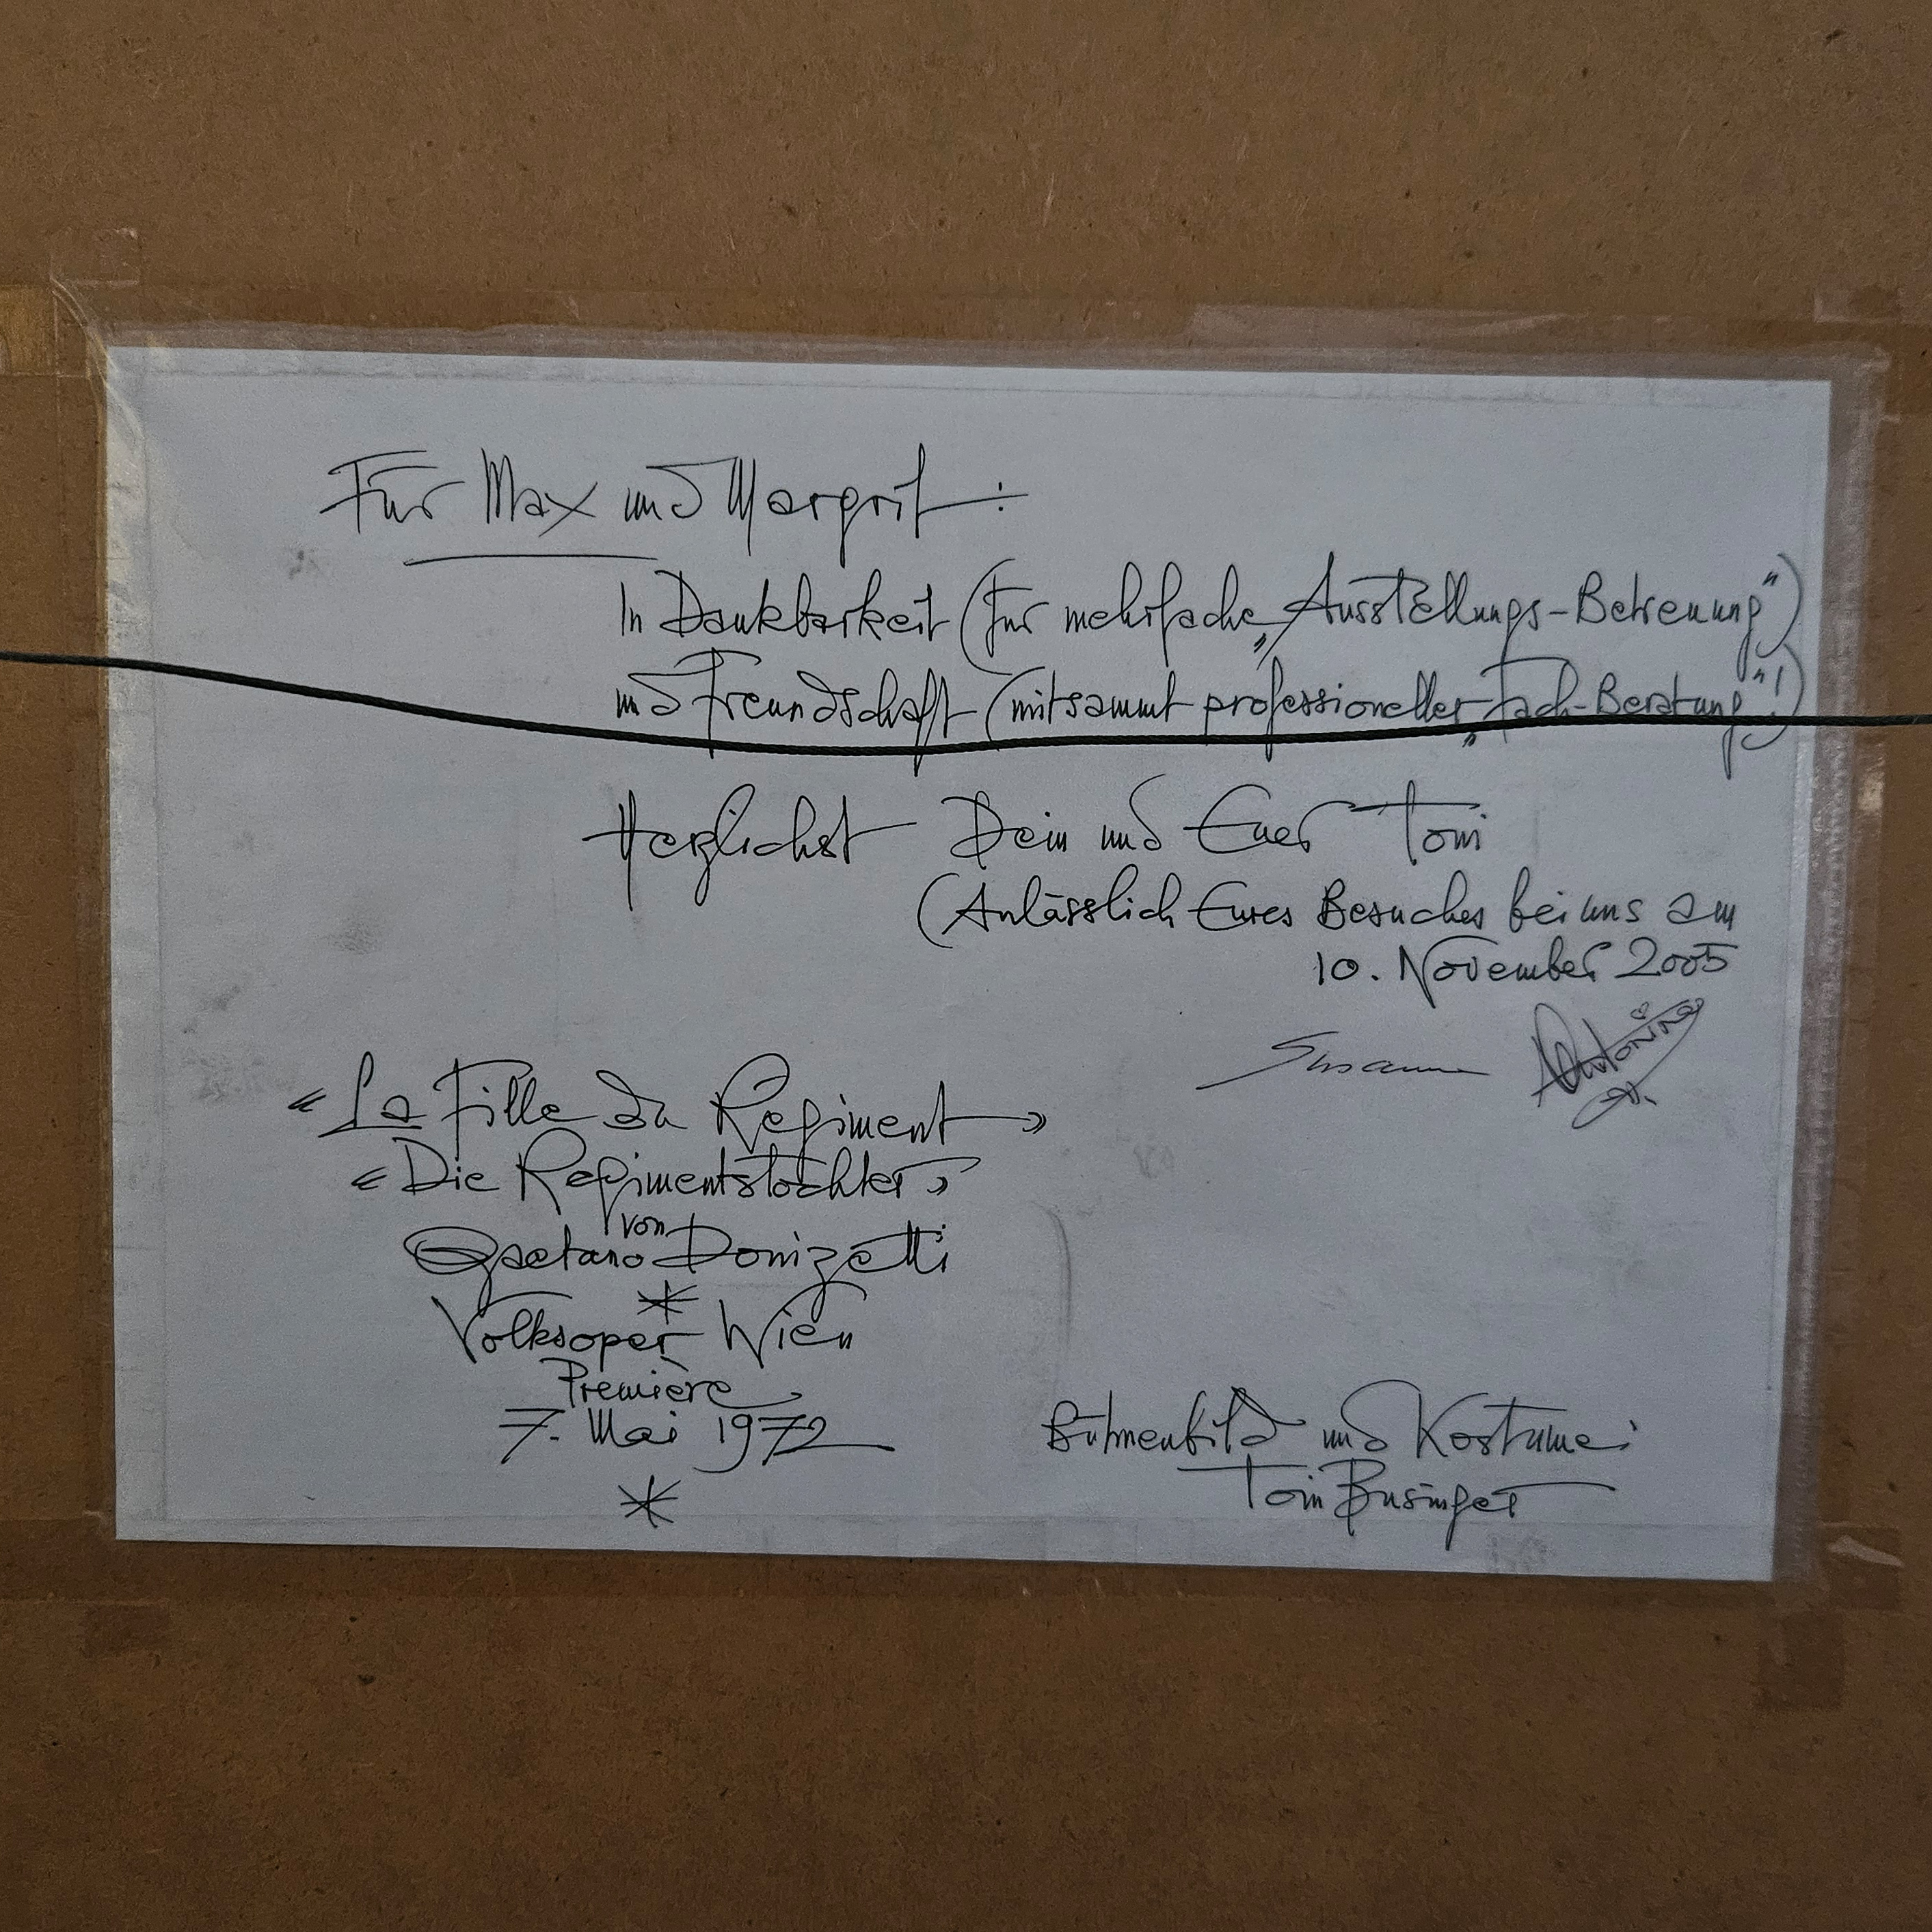 Für Max und Margrit:
In Dankbarkeit (für mehrfache „Ausstellungs-Betreuung")
und Freundschaft (mitsammt professioneller „Fach-Beratung"!)
Herzlichst Dein und Euer Toni
(Anlässlich Eures Besuches bei uns am
10. November 2005
Susanne Antonina
«La Fille du Regiment»
«Die Regimentstochter»
von
Gaetano Donizetti
*
Volksoper Wien
Première
7. Mai 1972
*
Bühnenbild und Kostüme:
Toni Businger